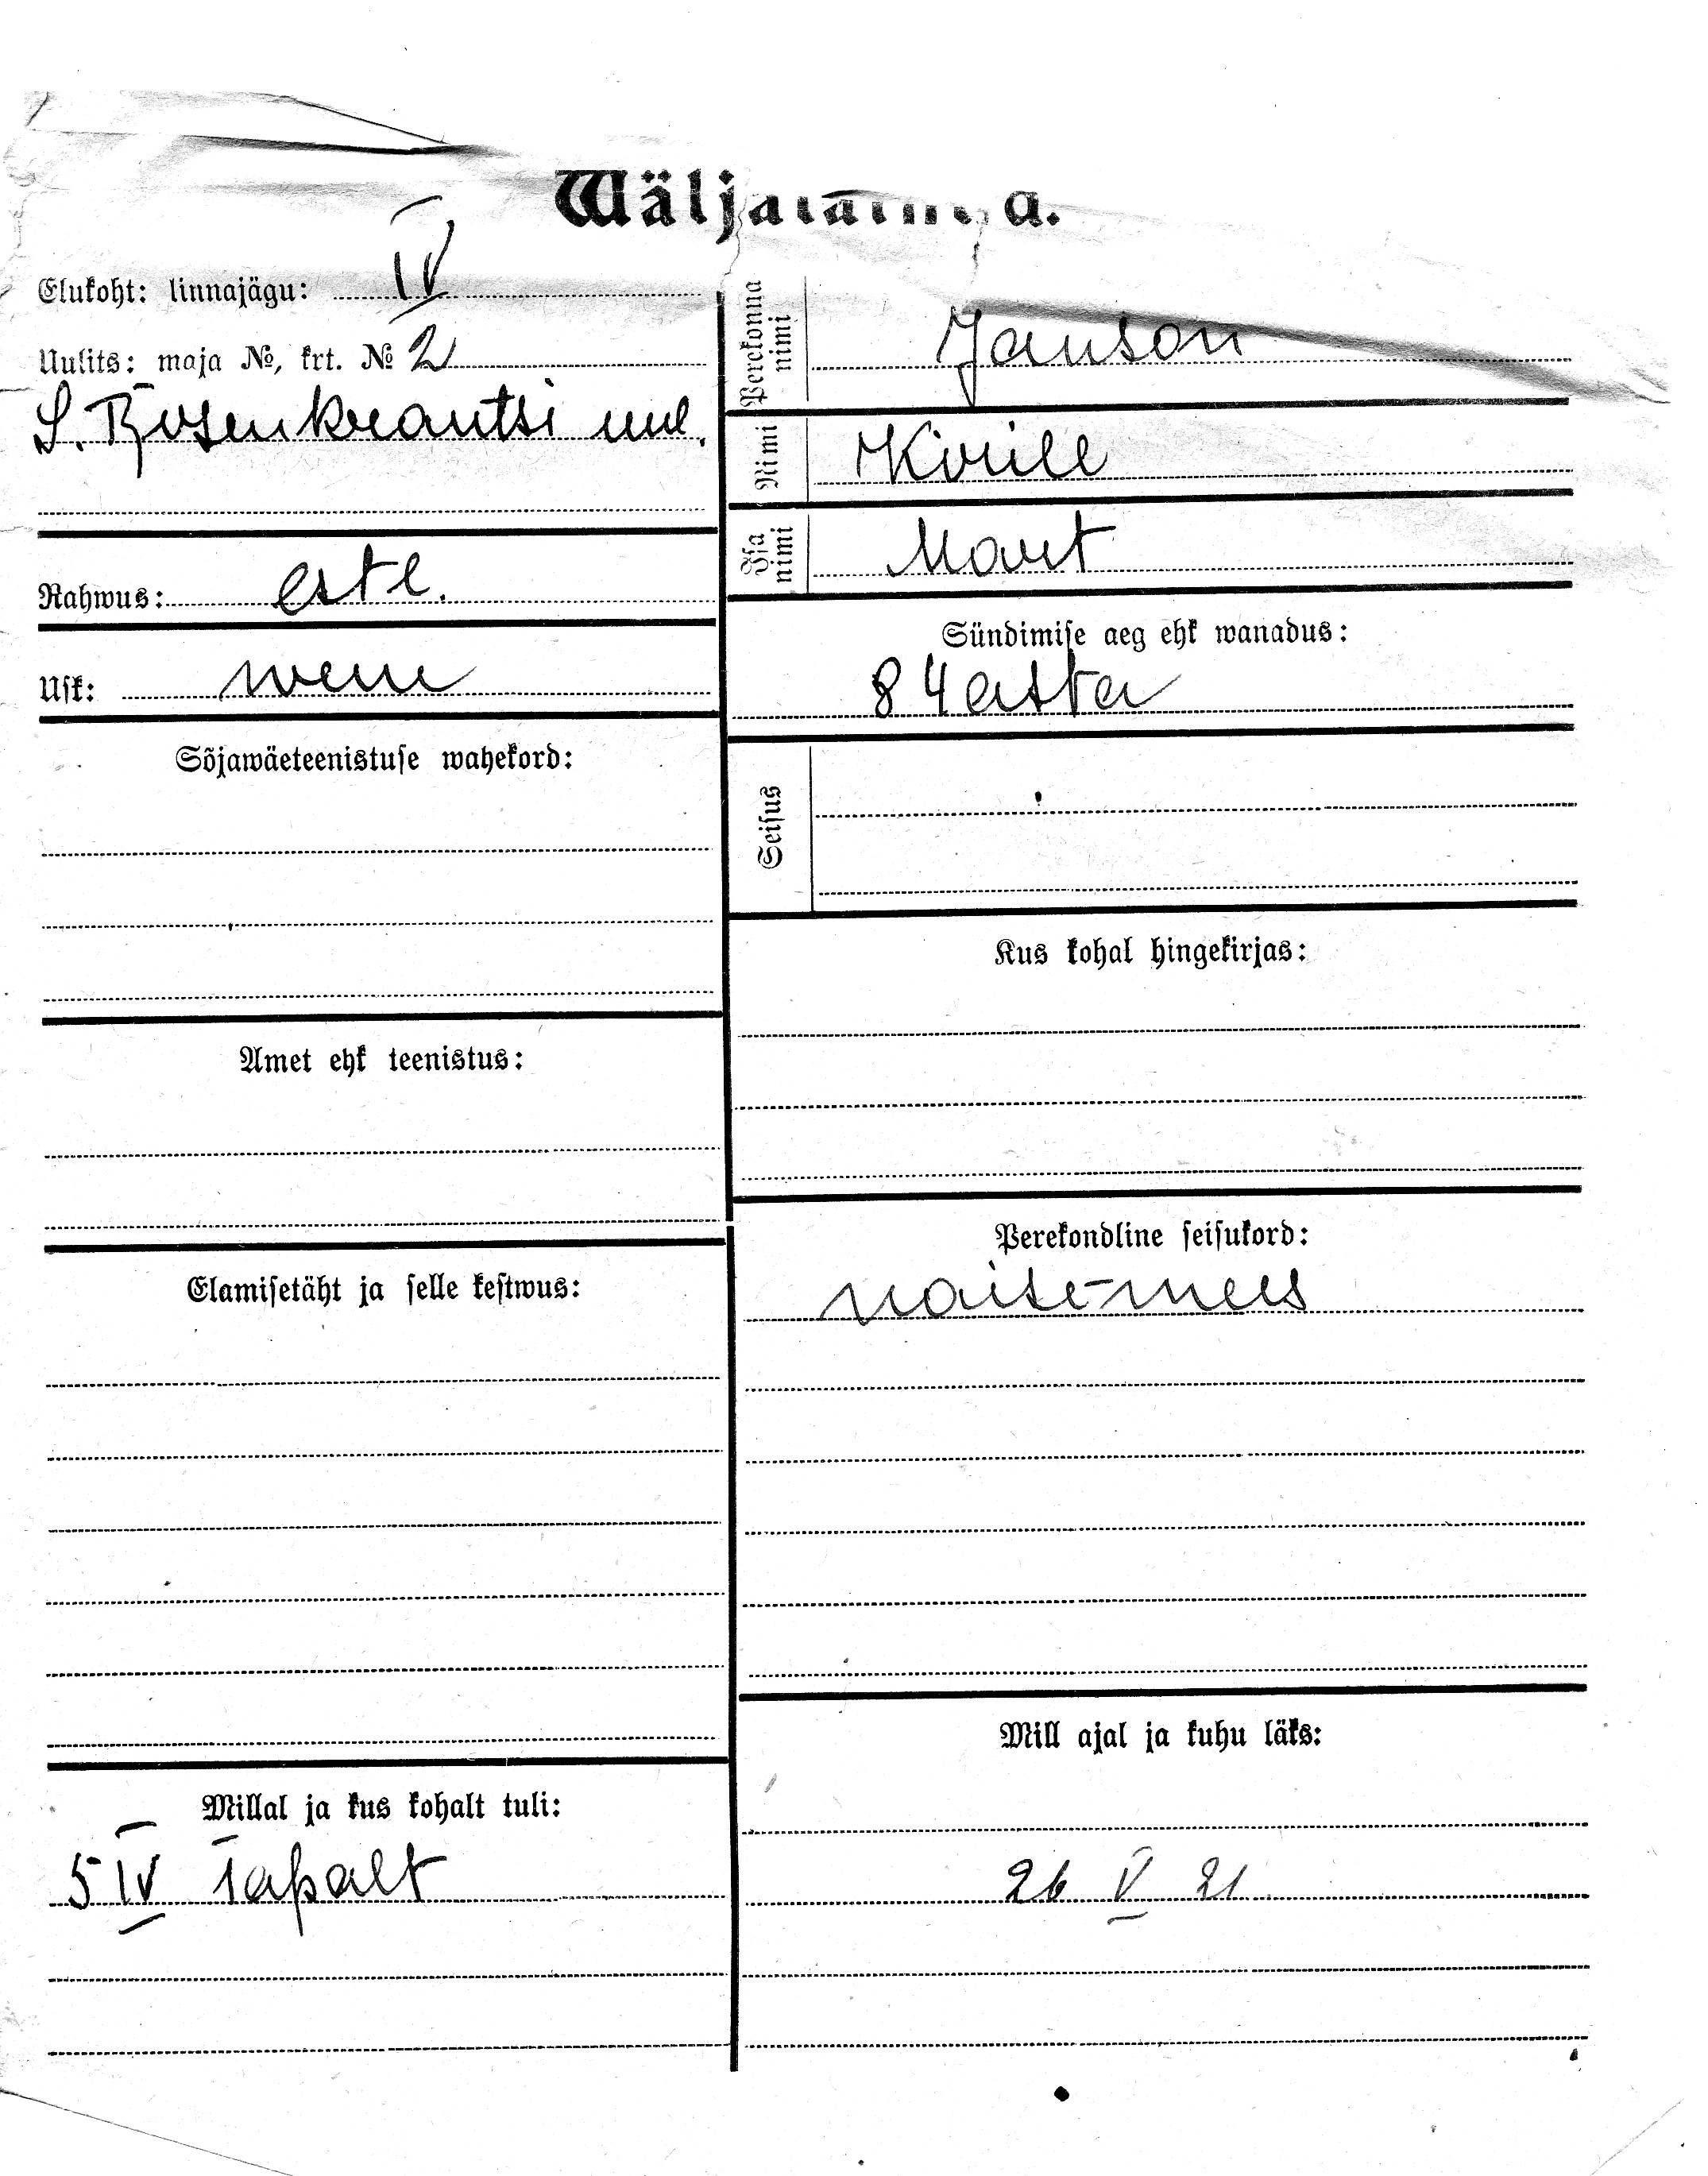 Elukoht: linnajägu: IV
Uulits: maja №, krt. № 2
S. Rosenkrantsi uul.
Rahwus: estl.
Usk: wene
Sõjawäeteenistuse wahekord:
Amet ehk teenistus:
Elamisetäht ja selle kestwus:
Millal ja kus kohalt tuli:
5 IV Tapalt
Perekonna nimi Janson
Nimi Kirill
Isa nimi Mart
Sündimise aeg ehk wanadus:
84 asta
Seisus
Kus kohal hingekirjas:
Perekondline seisukord:
naise-mees
Mill ajal ja kuhu läks:
26 V 21